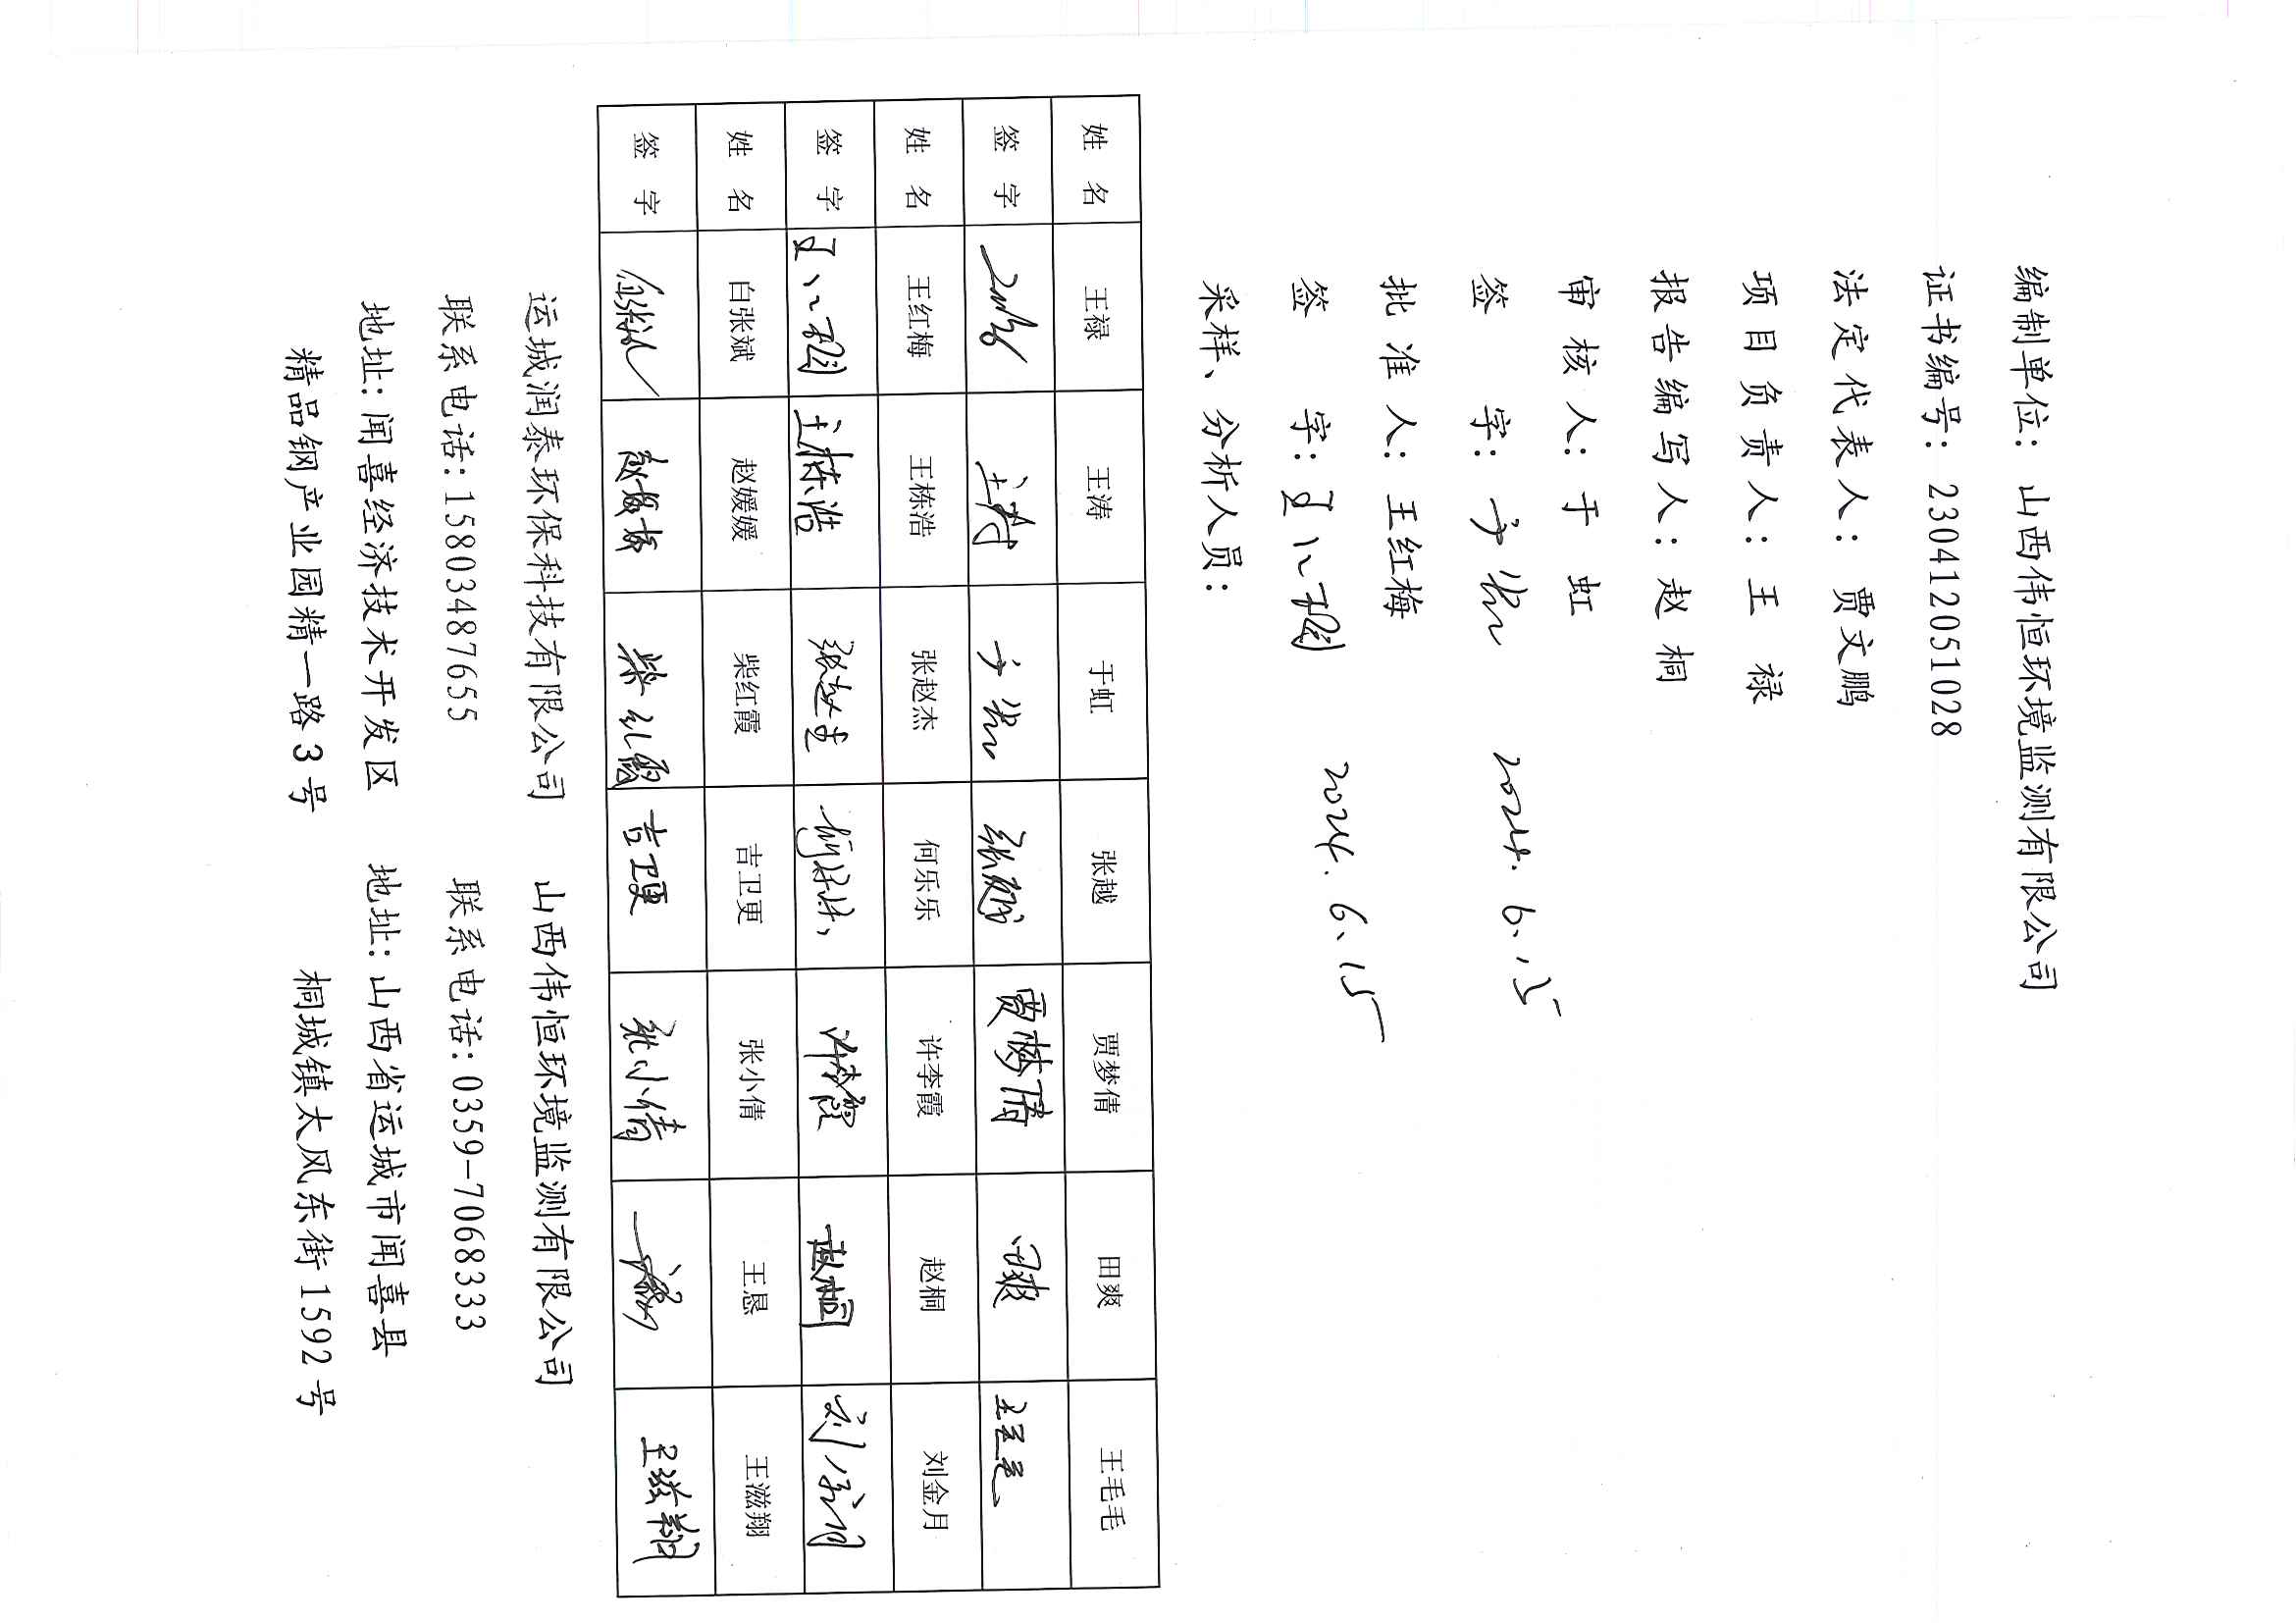 编制单位：山西伟恒环境监测有限公司
证书编号：230412051028
法定代表人：贾文鹏
项目负责人：王 禄
报告编写人：赵 桐
审核人：于 虹
签 字：于虹 2024.6.15
批准人：王红梅
签 字：王红梅 2024.6.15
采样、分析人员：
姓 名 王禄 王涛 于虹 张越 贾梦倩 田爽 王毛毛
签 字 王禄 王涛 于虹 张越 贾梦倩 田爽 王毛毛
姓 名 王红梅 王栋浩 张赵杰 何乐乐 许李霞 赵桐 刘金月
签 字 王红梅 王栋浩 张赵杰 何乐乐 许李霞 赵桐 刘金月
姓 名 白张斌 赵媛媛 柴红霞 吉卫更 张小倩 王恳 王滋翔
签 字 白张斌 赵媛媛 柴红霞 吉卫更 张小倩 王滋翔
运城润泰环保科技有限公司 山西伟恒环境监测有限公司
联系电话：15803487655 联系电话：0359-7068333
地址：闻喜经济技术开发区 地址：山西省运城市闻喜县
精品钢产业园精一路3号 桐城镇太风东街1592号